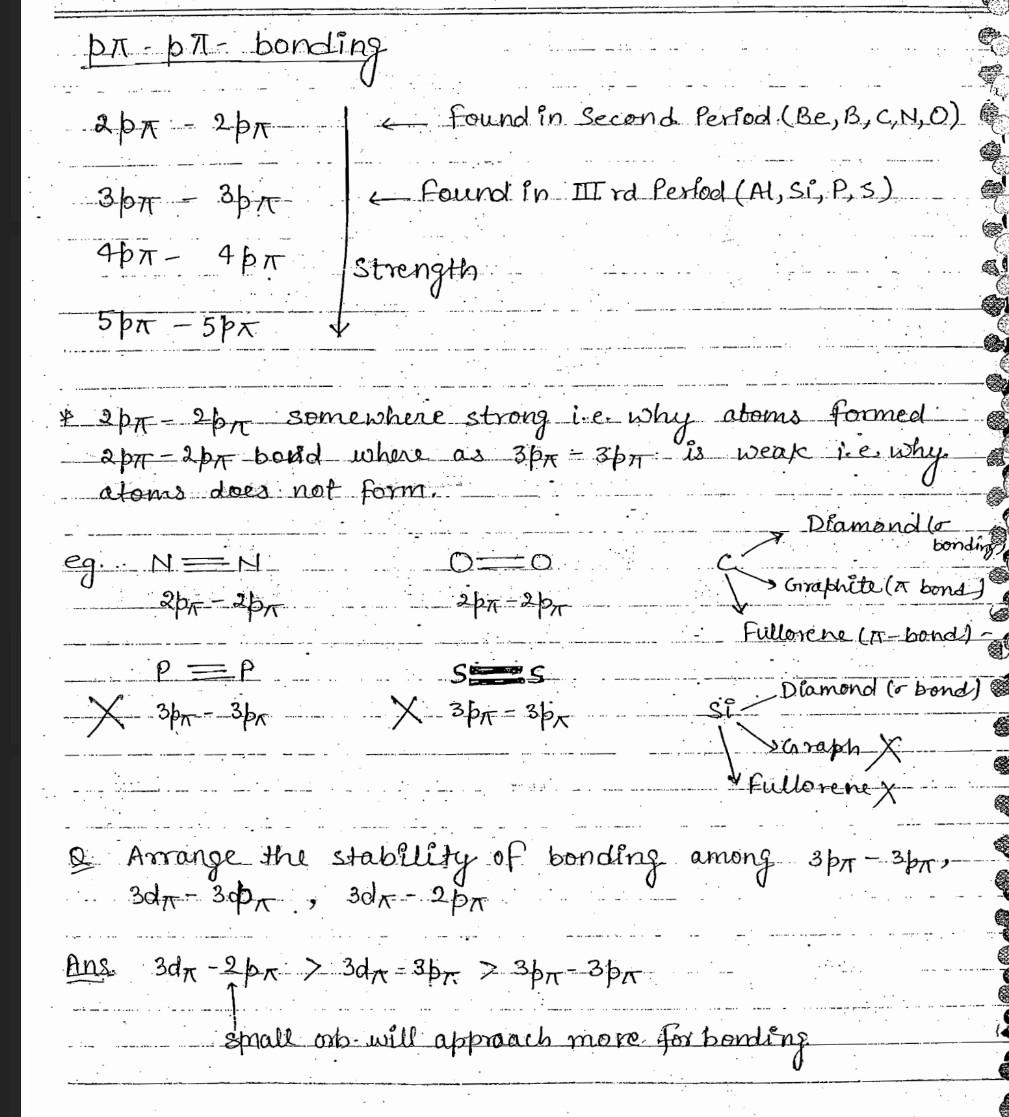 pπ - pπ - bonding
2pπ - 2pπ ← found in Second Period (Be, B, C, N, O)
3pπ - 3pπ ← found in III rd Period (Al, Si, P, S)
4pπ - 4pπ Strength
5pπ - 5pπ
* 2pπ - 2pπ somewhere strong i.e. why atoms formed
2pπ - 2pπ bond where as 3pπ - 3pπ is weak i.e. why
atoms does not form.
eg. N≡N O=O C → Diamond (σ bonding)
→ Graphite (π bond)
2pπ - 2pπ 2pπ - 2pπ
→ Fullorene (π - bond)
P≡P S=S
Si - Diamond (σ bond)
X 3pπ - 3pπ X 3pπ = 3pπ
→ Graph X
→ Fullorene X
Q Arrange the stability of bonding among 3pπ - 3pπ,
3dπ - 3pπ, 3dπ - 2pπ
Ans. 3dπ - 2pπ > 3dπ = 3pπ > 3pπ - 3pπ
↑
small orb. will approach more for bonding